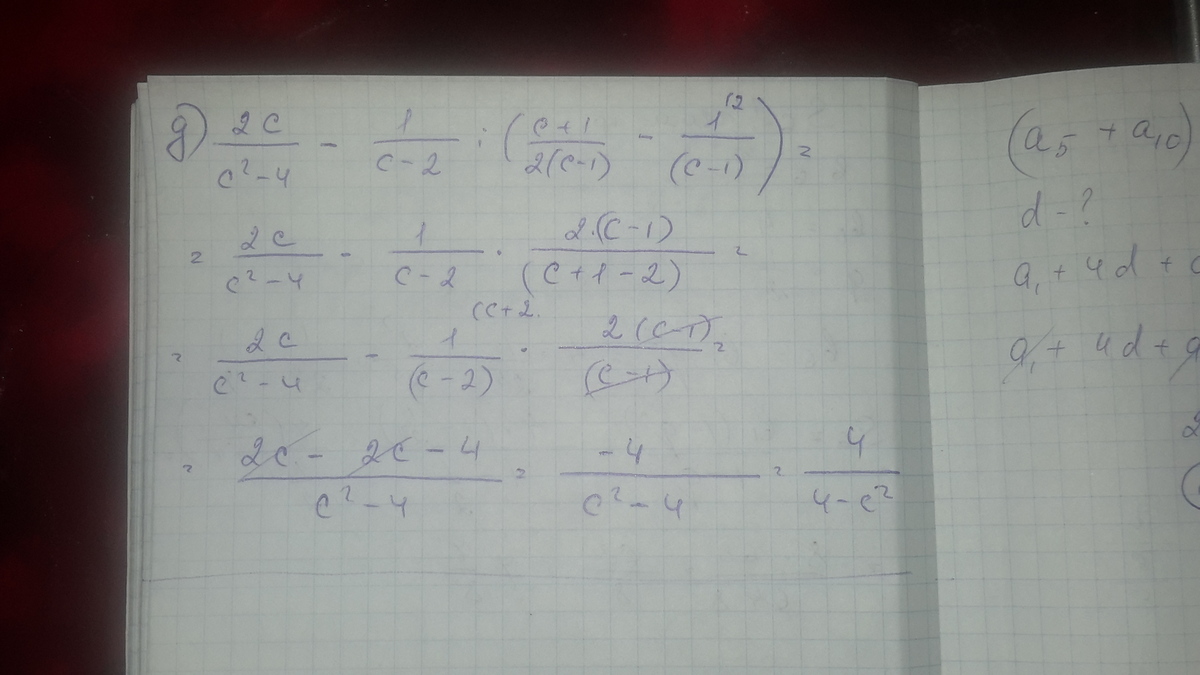 g) 2c/(c² - 4) - 1/(c - 2) : ((c + 1)/(2(c - 1)) - 1^(12)/((c - 1))) =
= 2c/(c² - 4) - 1/(c - 2) · 2·(c - 1)/((c + 1 - 2)) =
(c + 2.
= 2c/(c² - 4) - 1/((c - 2)) · 2(c - 1)/((c - 1)) =
= (2c - 2c - 4)/(c² - 4) = -4/(c² - 4) = 4/(4 - c²)
(a₅ + a₁₀)
d - ?
a₁ + 4d +
a₁ + 4d +
2
(